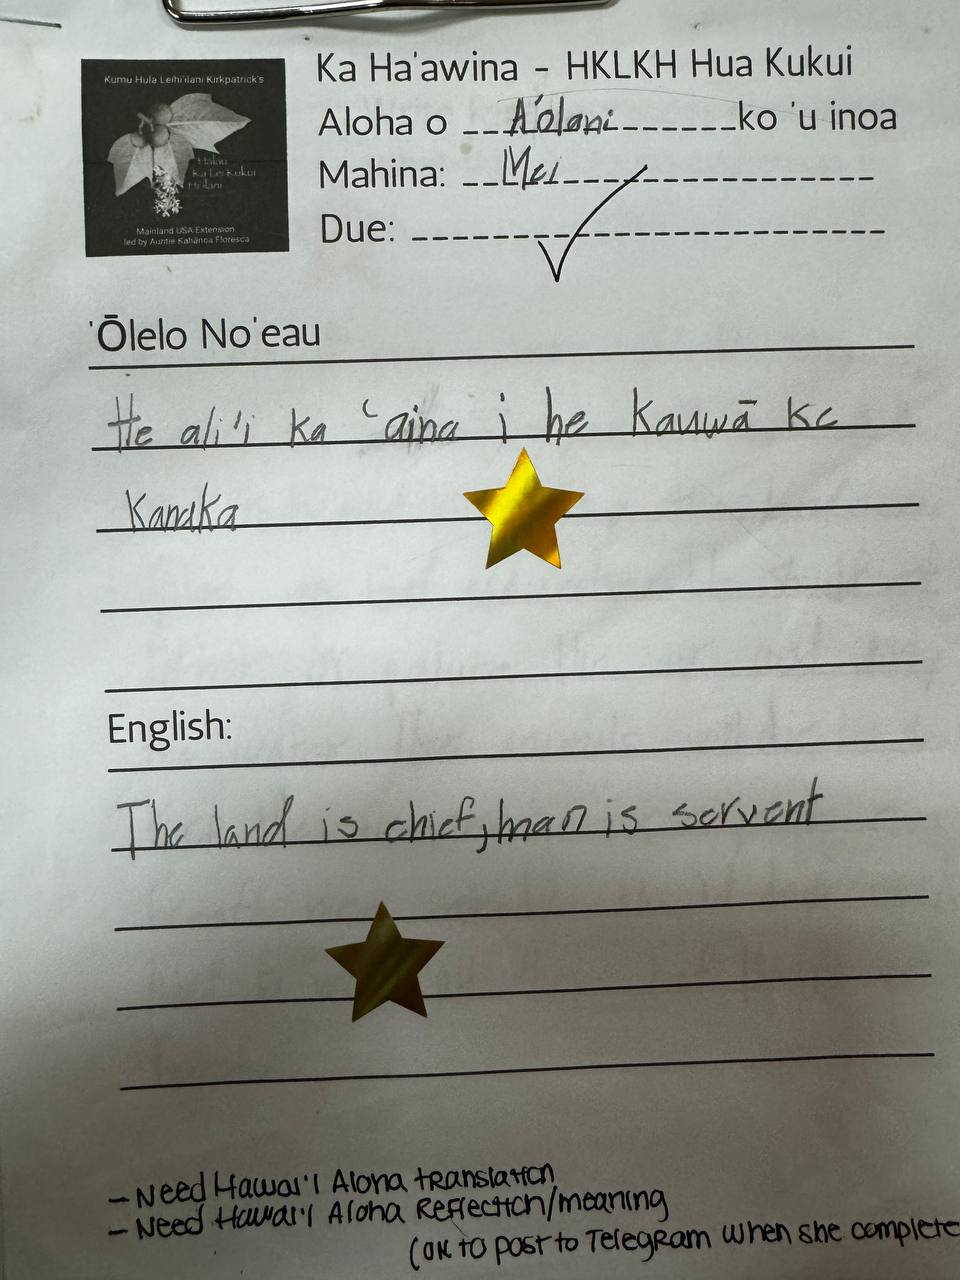 Kumu Hula Leihi'ilani Kirkpatrick's
Halau
Ka Lei Kukui
Hi'ilani
Mainland USA Extension
led by Auntie Kahanoa Floresca
Ka Ha'awina - HKLKH Hua Kukui
Aloha o A'olani ko 'u inoa
Mahina: Mei
Due:
'Ōlelo No'eau
He ali'i ka 'aina i he kauwā ke
Kanaka
English:
The land is chief, man is servent
- Need Hawai'i Aloha translation
- Need Hawai'i Aloha Reflection/meaning
(OK to post to Telegram when she complete